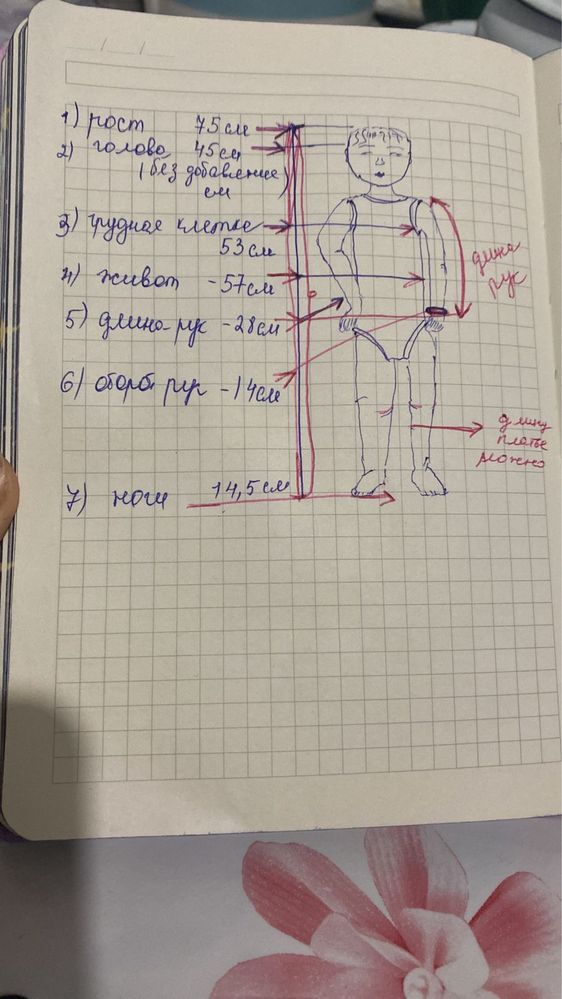 1) рост 75 см
2) голова 45 см
(без добавление
см)
3) грудная клетке
53 см
4) живот - 57 см
5) длина рук - 28 см
6) рук - 14 см
7) ноги 14,5 см
длина
рук
длину
платье
можно